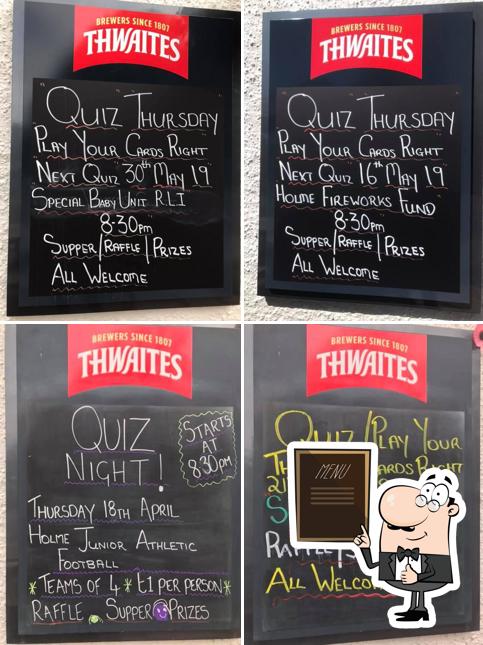 BREWERS SINCE 1807
THWAITES
"QUIZ" THURSDAY
"PLAY YOUR CARDS RIGHT"
NEXT QUIZ 30th MAY 19
SPECIAL BABY UNIT R.L.I
8:30pm
SUPPER/RAFFLE/PRIZES
ALL WELCOME
BREWERS SINCE 1807
THWAITES
"QUIZ" THURSDAY
"PLAY YOUR CARDS RIGHT"
NEXT QUIZ 16th MAY 19
HOLME FIREWORKS FUND
8:30pm
SUPPER/RAFFLE/PRIZES
ALL WELCOME
BREWERS SINCE 1807
THWAITES
QUIZ
NIGHT!
STARTS
AT
8:30pm
THURSDAY 18TH APRIL
HOLME JUNIOR ATHLETIC
FOOTBALL
* TEAMS OF 4 * £1 PER PERSON *
RAFFLE SUPPER PRIZES
BREWERS SINCE 1807
THWAITES
QUIZ/PLAY YOUR
CARDS RIGHT
MENU
ALL WELCOME